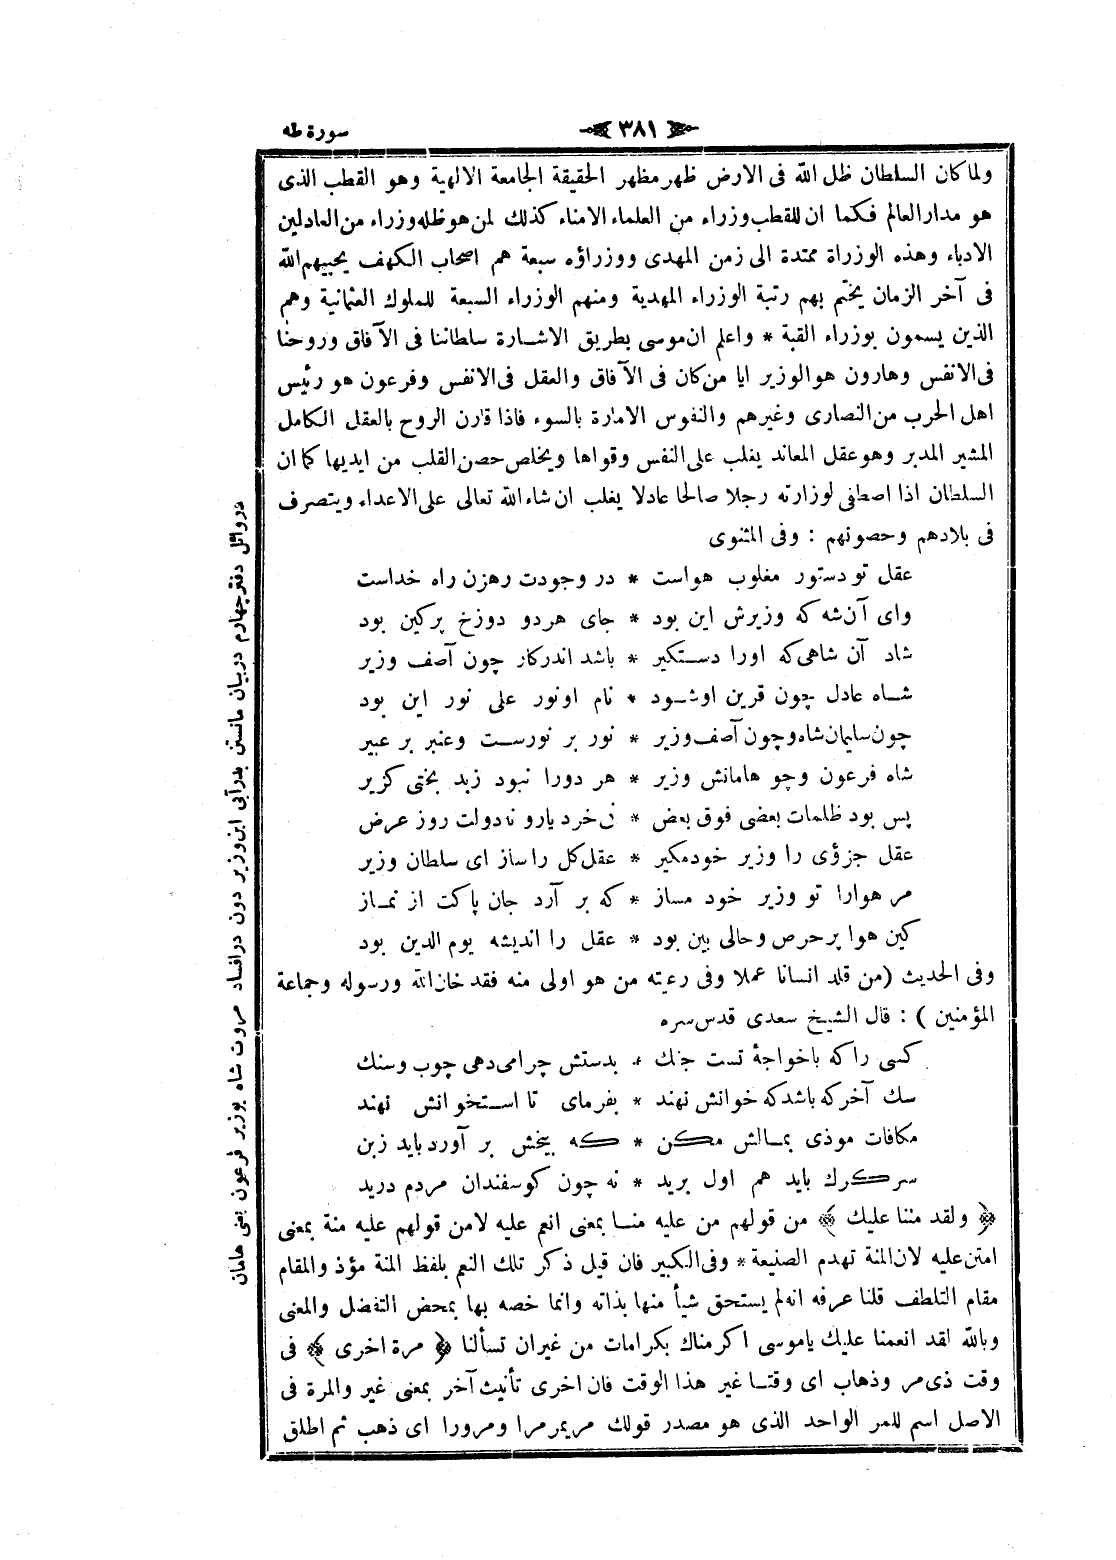 سورة طه
٣٨١
ولما كان السلطان ظل الله فى الارض ظهر مظهر الحقيقة الجامعة الالهية وهو القطب الذى
هو مدار العالم فكما ان للقطب وزراء من العلماء الامناء كذلك لمن هو ظله وزراء من العادلين
الادباء وهذه الوزراة ممتدة الى زمن المهدى ووزراؤه سبعة هم اصحاب الكهف يحييهم الله
فى آخر الزمان يختم بهم رتبة الوزراء المهدية ومنهم الوزراء السبعة للملوك العثمانية وهم
الذين يسمون بوزراء القبة * واعلم ان موسى بطريق الاشارة سلطاننا فى الآفاق وروحنا
فى الانفس وهارون هو الوزير ايا من كان فى الآفاق والعقل فى الانفس وفرعون هو رئيس
اهل الحرب من النصارى وغيرهم والنفوس الامارة بالسوء فاذا قارن الروح بالعقل الكامل
المشير المدبر وهو عقل المعاند يغلب على النفس وقواها ويخلص حصن القلب من ايديها كما ان
السلطان اذا اصطفى لوزارته رجلا صالحا عادلا يغلب ان شاء الله تعالى على الاعداء ويتصرف
فى بلادهم وحصونهم : وفى المثنوى
عقل تو دستور مغلوب هواست * در وجودت رهزن راه خداست
واى آن شه كه وزيرش اين بود * جاى هردو دوزخ پركين بود
شاد آن شاهى كه اورا دستكير * باشد اندركار چون آصف وزير
شاه عادل چون قرين اوشود * نام اونور على نور اين بود
چون سليمان شاه وچون آصف وزير * نور بر نورست وعنبر بر عبير
شاه فرعون وچو هامانش وزير * هر دورا نبود زبد بختى كزير
پس بود ظلمات بعضى فوق بعض * نى خرد يارو نه دولت روز عرض
عقل جزؤى را وزير خود مكير * عقل كل را ساز اى سلطان وزير
مر هوارا تو وزير خود مساز * كه بر آرد جان پاكت از نماز
كين هوا پرحرص وحالى بين بود * عقل را انديشه يوم الدين بود
وفى الحديث (من قلد انسانا عملا وفى رعيته من هو اولى منه فقد خان الله ورسوله وجماعة
المؤمنين ) : قال الشيخ سعدى قدس سره
كسى را كه با خواجۀ تست جنك * بدستش چرا مى دهى چوب وسنك
سك آخر كه باشد كه خوانش نهند * بفرماى تا استخوانش نهند
مكافات موذى بمالش مكن * كه بيخش بر آورد بايد زبن
سر كرك بايد هم اول بريد * نه چون كوسفندان مردم دريد
﴿ ولقد مننا عليك ﴾ من قولهم من عليه منا بمعنى انعم عليه لا من قولهم عليه منة بمعنى
امتن عليه لان المنة تهدم الصنيعة * وفى الكبير فان قيل ذكر تلك النعم بلفظ المنة مؤذ والمقام
مقام التلطف قلنا عرفه انه لم يستحق شيأ منها بذاته وانما خصه بها بمحض التفضل والمعنى
وبالله لقد انعمنا عليك ياموسى اكرمناك بكرامات من غير ان تسألنا ﴿ مرة اخرى ﴾ فى
وقت ذى مر وذهاب اى وقتا غير هذا الوقت فان اخرى تأنيث آخر بمعنى غير والمرة فى
الاصل اسم للمر الواحد الذى هو مصدر قولك مر يمر مرا ومرورا اى ذهب ثم اطلق
در اوائل دفتر چهارم در بيان مانستن بدرأيى اين وزير دون در افساد مروت شاه بوزير فرعون يعنى هامان